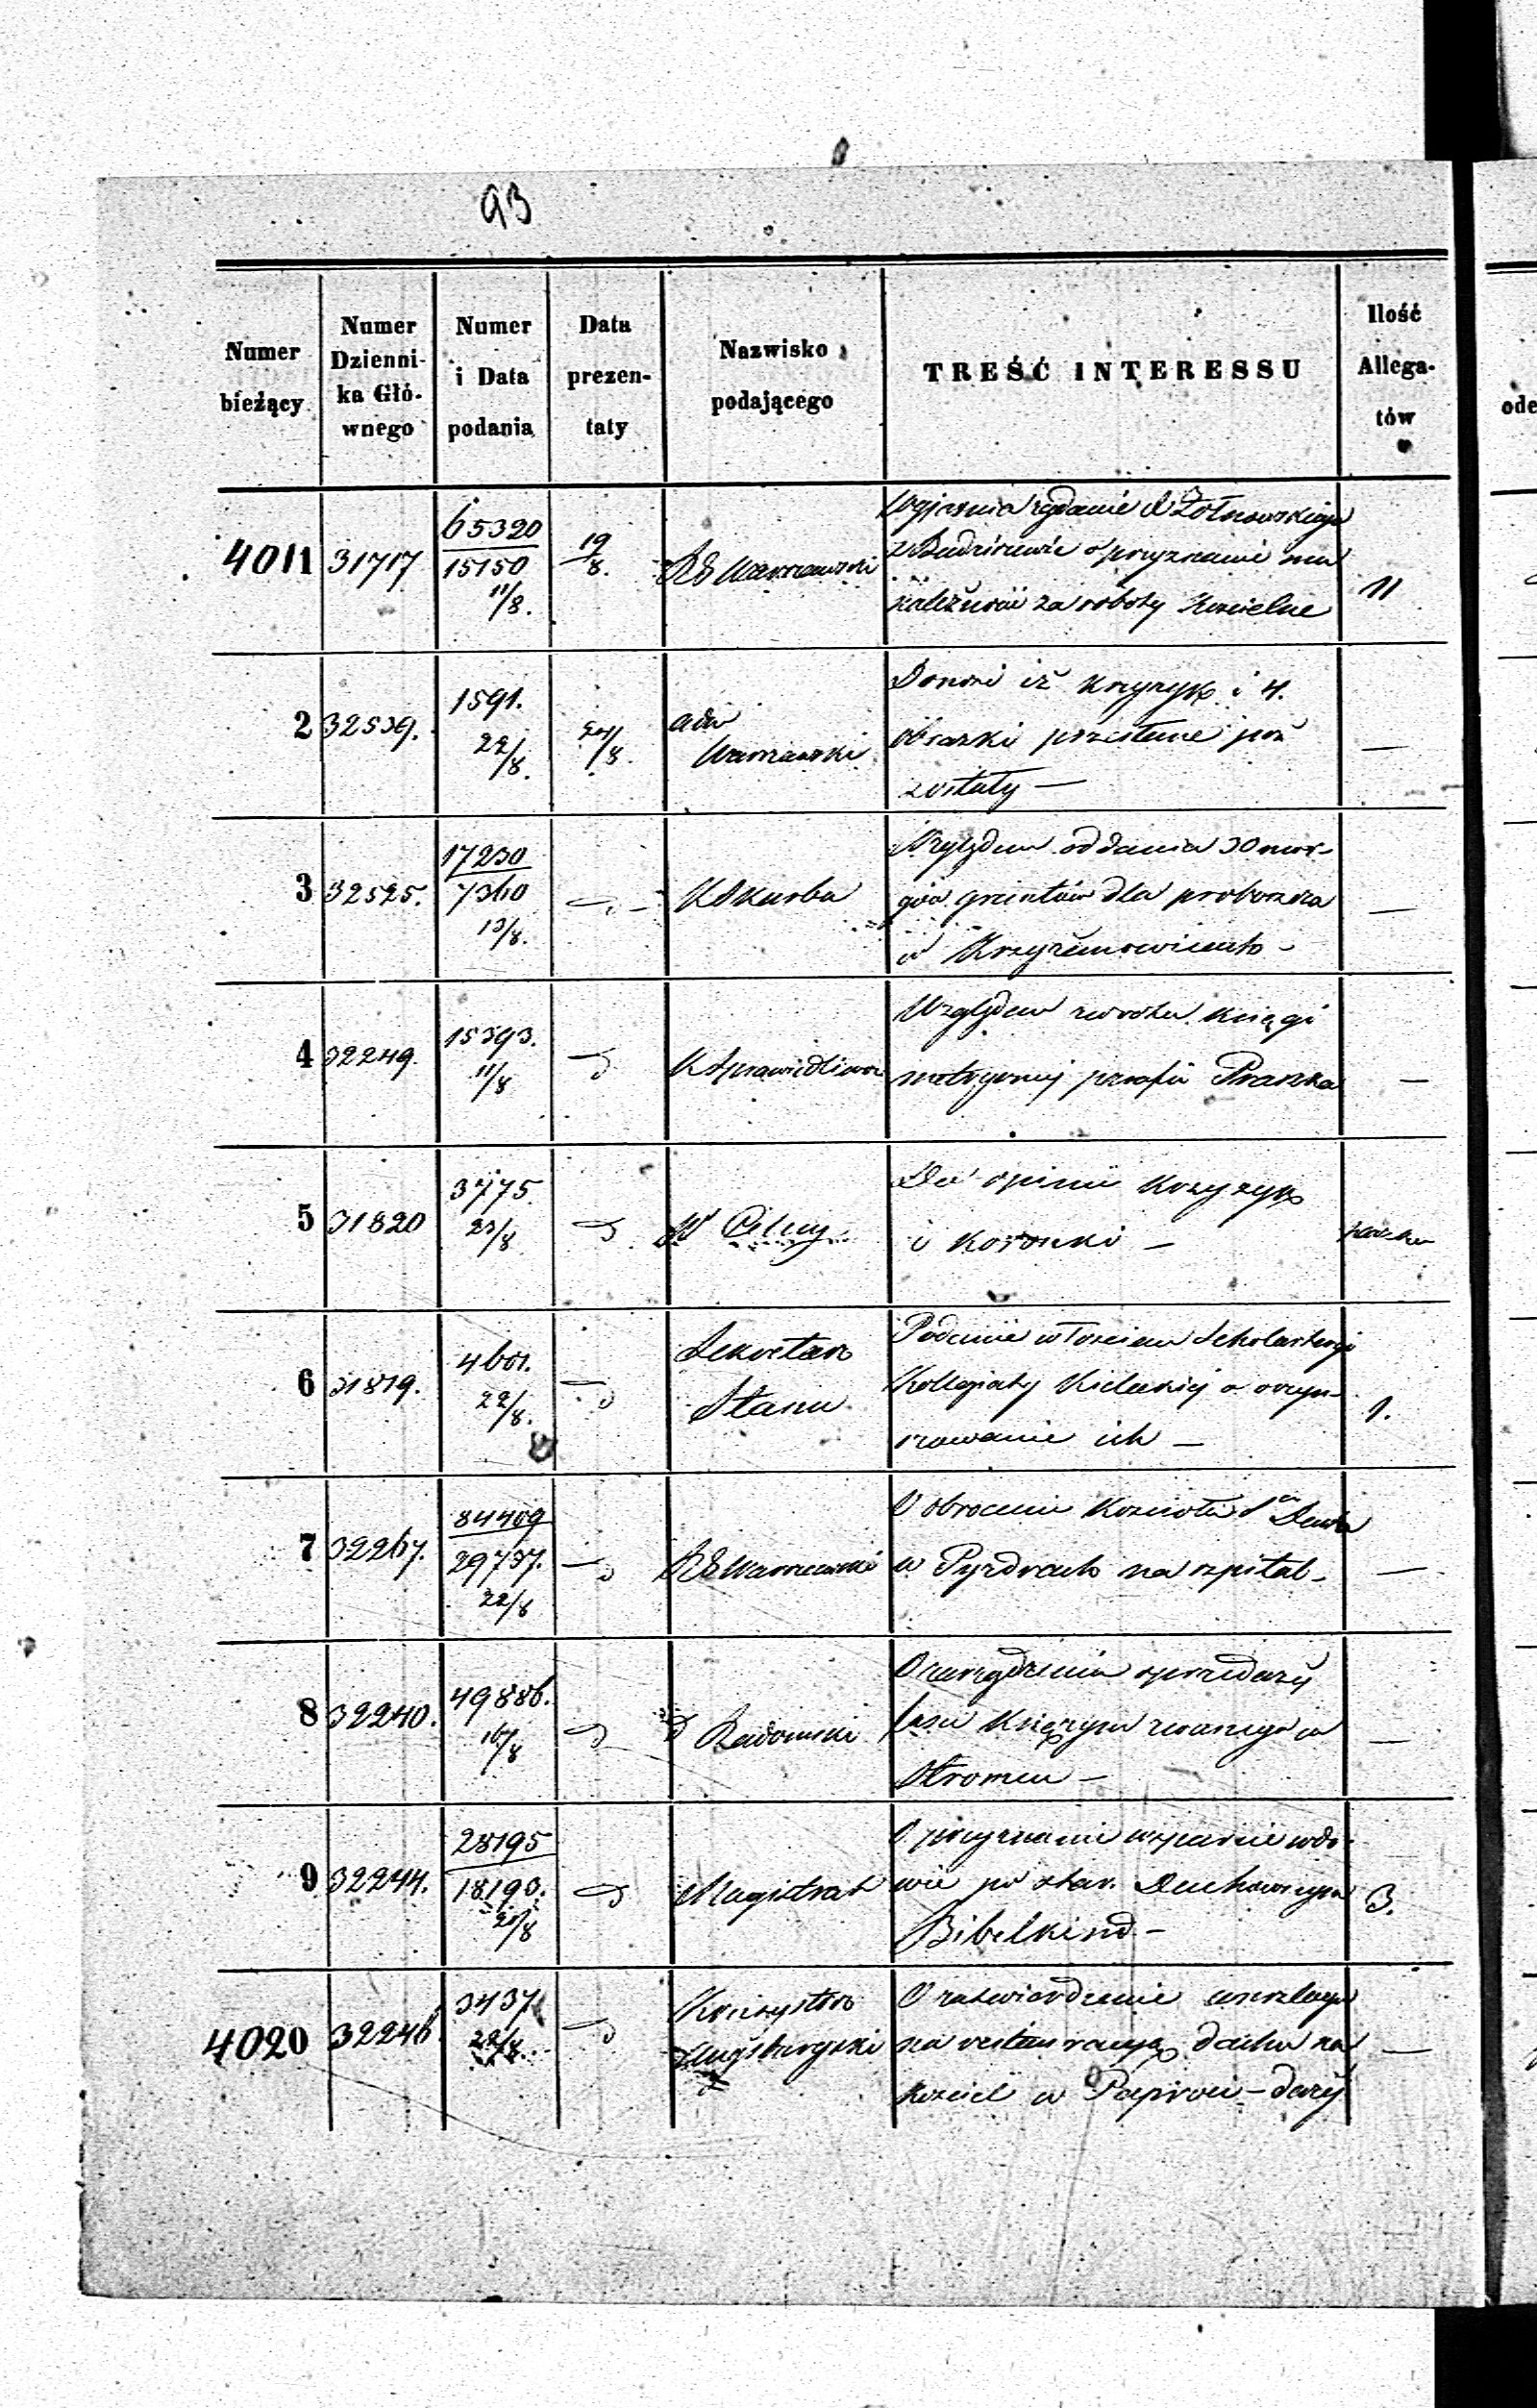 93
Numer bieżący
Numer Dzienni- ka Głó- wnego
Numer i Data podania
Data prezen- taty
Nazwisko podającego
TREŚĆ INTERESSU
Ilość Allega- tów
ode
4011 31717 65320 15150 11/8. 19/8. RG Warszawski
Wyjaśnia żądanie Żołnowskiego
o przyznanie mu
za roboty Kościelne
11
2 32539. 1591. 22/8. 24/8. adm Warszawski
Donosi iż krzyżyk i 4.
obrazki przesłane już
zostały —
—
3 32525. 17230 7360 13/8. K Skarbu
Względem oddania 30 mor-
gów gruntów dla proboszcza
w —
—
4 32249. 15393. 11/8 d K Sprawiedliwoś
Względem zwrotu księgi
metrycznej parafii Praszka
—
5 31820 3775. 23/8 d
Do opinii krzyżyk
i koronki —
6 31819. 4601. 22/8. d Sekretarz Stanu
Podanie włościan Scholasteryi
Kollegiaty Kieleckiej o oczyn-
szowanie ich —
1.
7 32267. 84409 29737. 22/8 d RG Warszawski
O obrocenie Kościoła Sgo Ducha
w Pyzdrach na szpital —
—
8 32240. 49886. 16/8 d d Radomski
O zarządzenie sprzedaży
lasu Księżym zwanego w
Stromcu —
—
9 32244. 28195 18190. 20/8 d Magistrat
O przyznanie wsparcie wdo-
wie po star. Duchownym
Bibelkind —
3.
4020 32246 3437 22/8. d Konsystorz Augsburgski
O zatwierdzenie anszlagu
na restauracyę dachu na
kościele w Paproci-duży
—